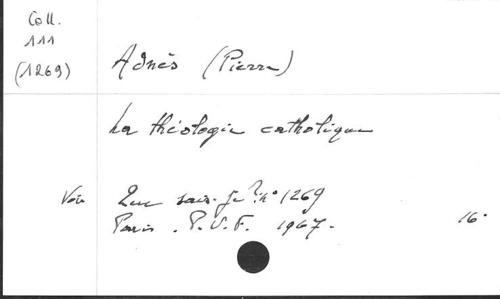 Coll.
111
(1269)
Adnès (Pierre)
La théologie catholique
Voir Que sais-je? n° 1269
Paris. P.U.F. 1967. 16°